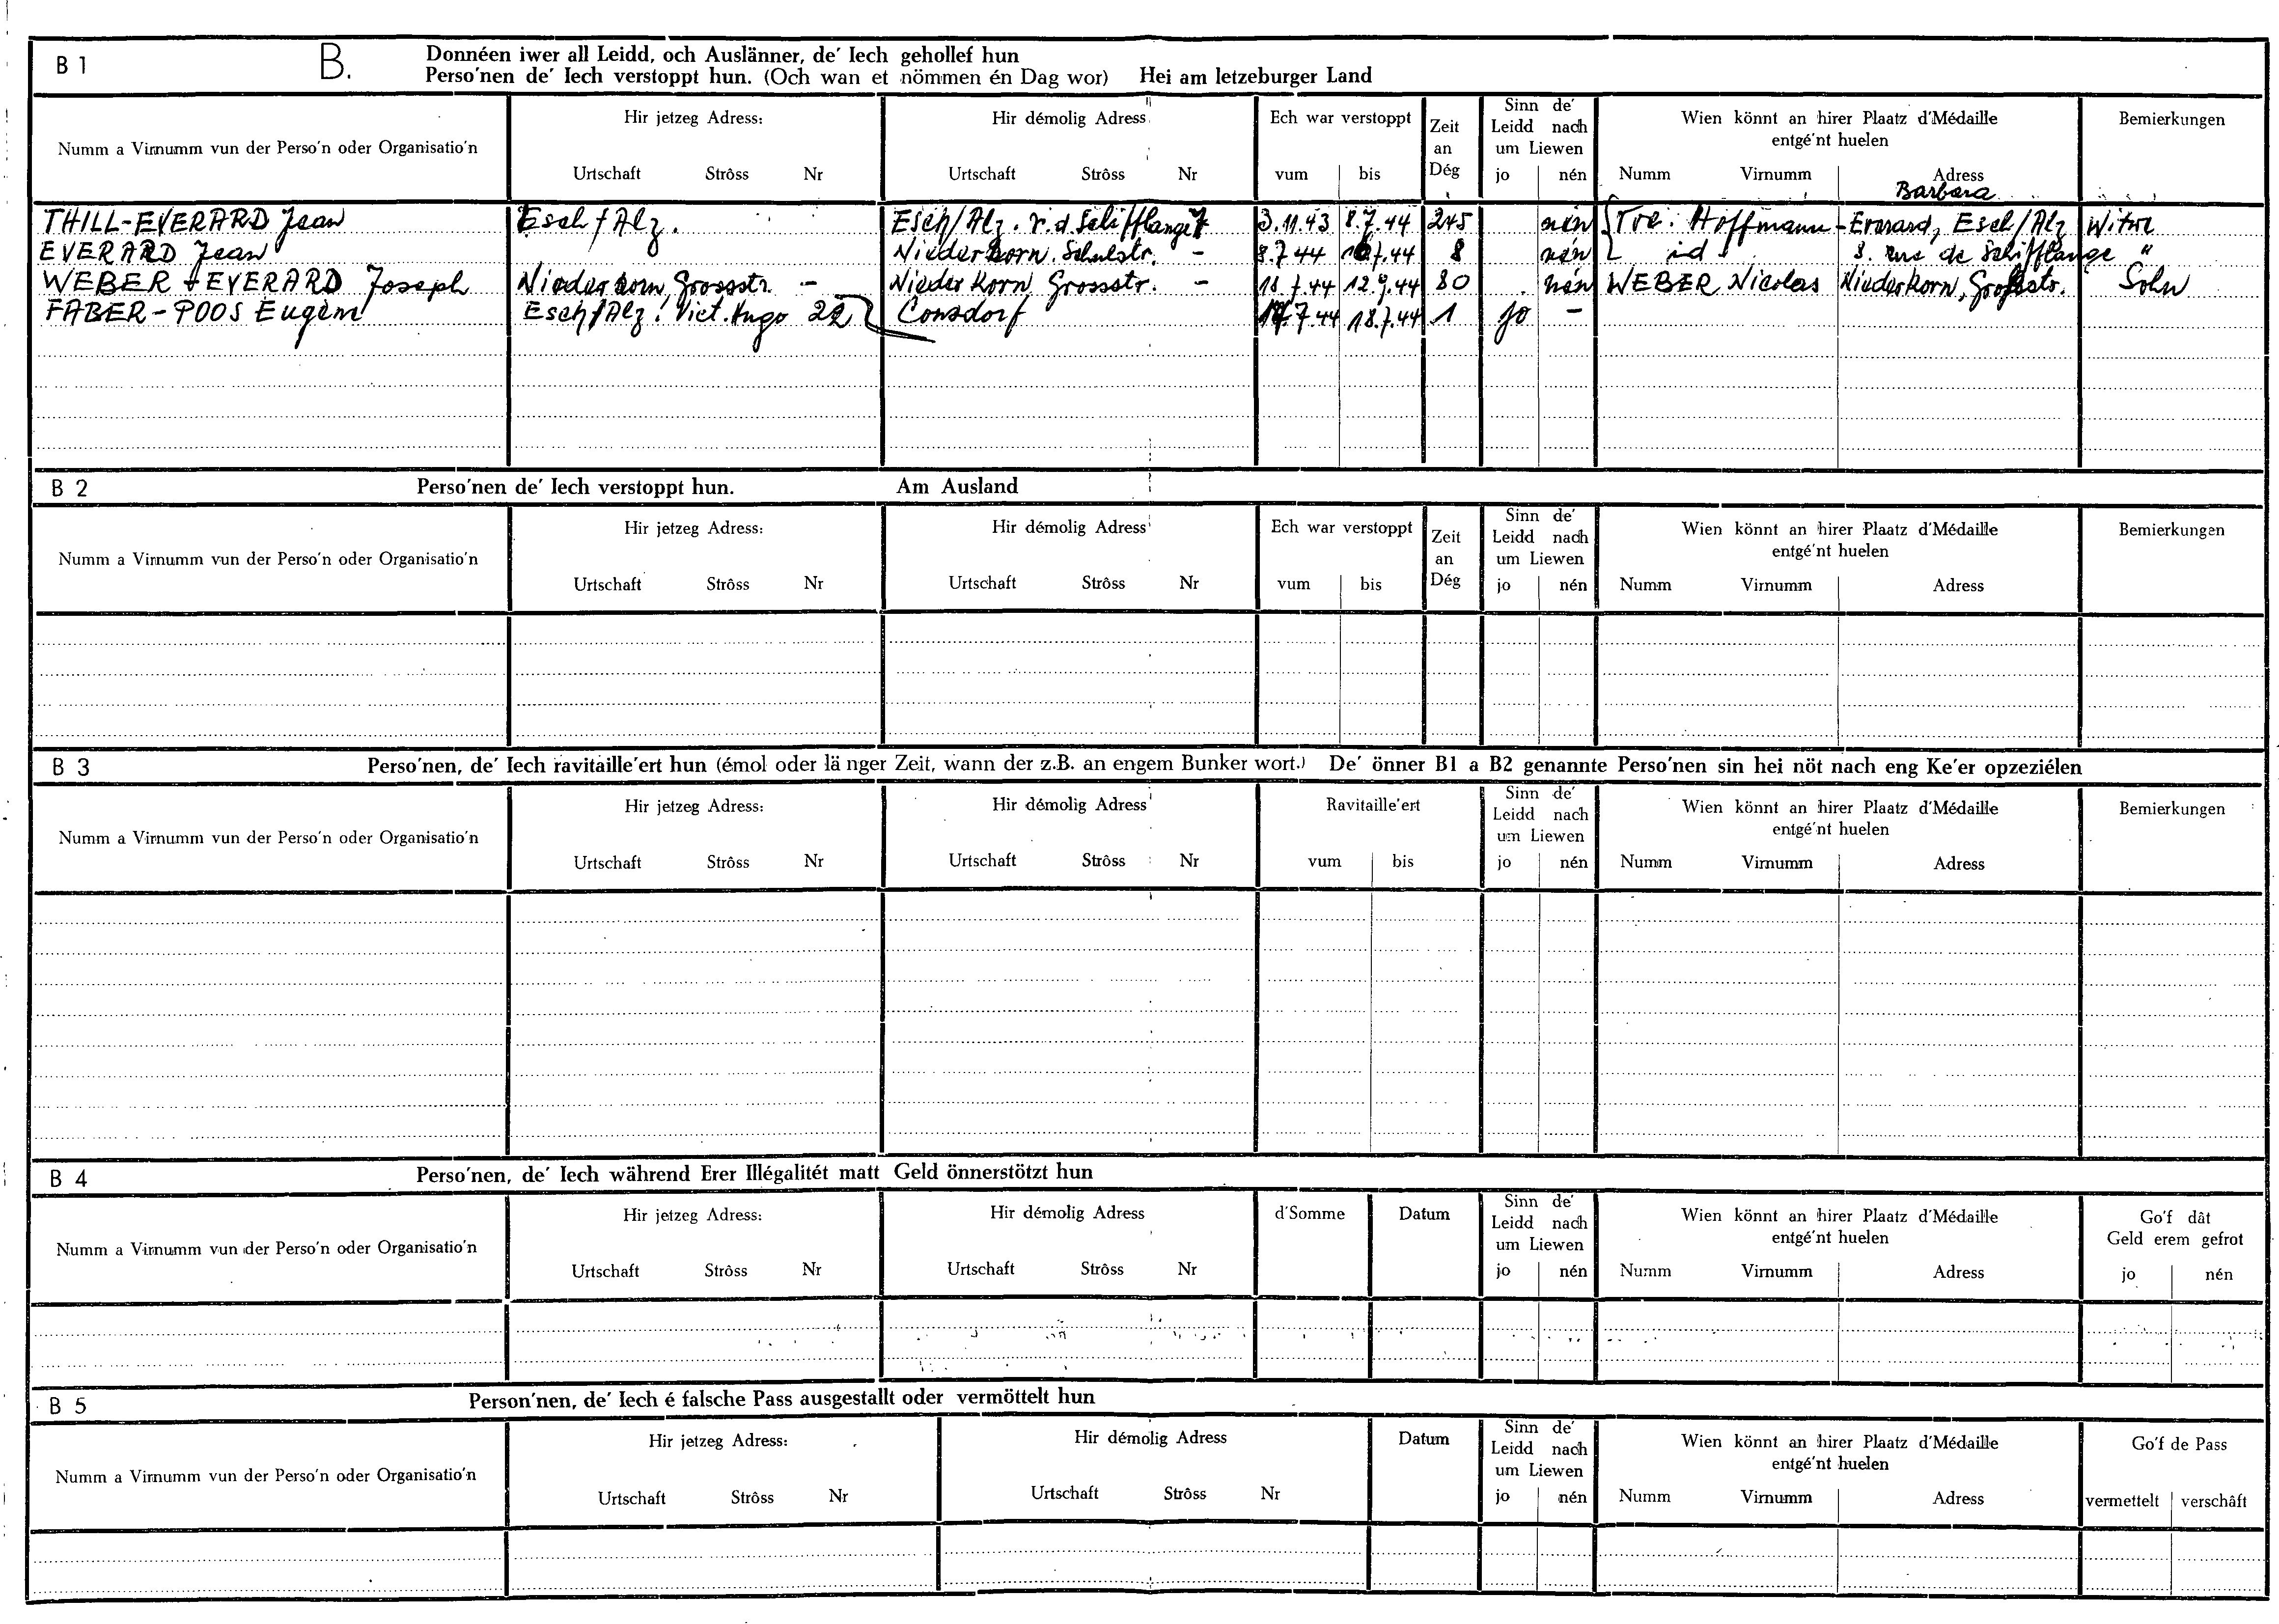 B 1 B. Donnéen iwer all Leidd, och Auslänner, de' Iech gehollef hun
Perso'nen de' Iech verstoppt hun. (Och wan et nömmen én Dag wor) Hei am letzeburger Land
Numm a Virnumm vun der Perso'n oder Organisatio'n
Hir jetzeg Adress:
Urtschaft Strôss Nr
Hir démolig Adress
Urtschaft Strôss Nr
Ech war verstoppt
vum bis
Zeit
an
Dég
Sinn de'
Leidd nach
um Liewen
jo nén
Wien könnt an hirer Plaatz d'Médaille
entgé'nt huelen
Numm Virnumm Adress
Bemierkungen
Barbara
THILL-EVERARD Jean Esch/Alz. Esch/Alz. r.d. Schifflange 7 3.11.43 8.7.44 245 nén Hoffmann-Everard, Esch/Alz Witwe
EVERARD Jean Niederkorn. Schulstr. - 8.7.44 44 8 nén id 8. rue de Schifflange "
WEBER-EVERARD Joseph Niederkorn, Grossstr. - Niederkorn, Grossstr. - 18.7.44 12.9.44 80 nén WEBER Nicolas Niederkorn, Großstr. Sohn
FABER-POOS Eugène Esch/Alz. Vict. Hugo 22 Consdorf 7.44 18.7.44 1 jo -
B 2 Perso'nen de' Iech verstoppt hun. Am Ausland
Numm a Virnumm vun der Perso'n oder Organisatio'n
Hir jetzeg Adress:
Urtschaft Strôss Nr
Hir démolig Adress
Urtschaft Strôss Nr
Ech war verstoppt
vum bis
Zeit
an
Dég
Sinn de'
Leidd nach
um Liewen
jo nén
Wien könnt an hirer Plaatz d'Médaille
entgé'nt huelen
Numm Virnumm Adress
Bemierkungen
B 3 Perso'nen, de' Iech ravitaille'ert hun (émol oder länger Zeit, wann der z.B. an engem Bunker wort.) De' önner B1 a B2 genannte Perso'nen sin hei nöt nach eng Ke'er opzeziélen
Numm a Virnumm vun der Perso'n oder Organisatio'n
Hir jetzeg Adress:
Urtschaft Strôss Nr
Hir démolig Adress
Urtschaft Strôss Nr
Ravitaille'ert
vum bis
Sinn de'
Leidd nach
um Liewen
jo nén
Wien könnt an hirer Plaatz d'Médaille
entgé'nt huelen
Numm Virnumm Adress
Bemierkungen
B 4 Perso'nen, de' Iech während Erer Illégalitét matt Geld önnerstötzt hun
Numm a Virnumm vun der Perso'n oder Organisatio'n
Hir jetzeg Adress:
Urtschaft Strôss Nr
Hir démolig Adress
Urtschaft Strôss Nr
d'Somme
Datum
Sinn de'
Leidd nach
um Liewen
jo nén
Wien könnt an hirer Plaatz d'Médaille
entgé'nt huelen
Numm Virnumm Adress
Go'f dât
Geld erem gefrot
jo nén
B 5 Person'nen, de' Iech é falsche Pass ausgestallt oder vermöttelt hun
Numm a Virnumm vun der Perso'n oder Organisatio'n
Hir jetzeg Adress:
Urtschaft Strôss Nr
Hir démolig Adress
Urtschaft Strôss Nr
Datum
Sinn de'
Leidd nach
um Liewen
jo nén
Wien könnt an hirer Plaatz d'Médaille
entgé'nt huelen
Numm Virnumm Adress
Go'f de Pass
vermettelt verschâft